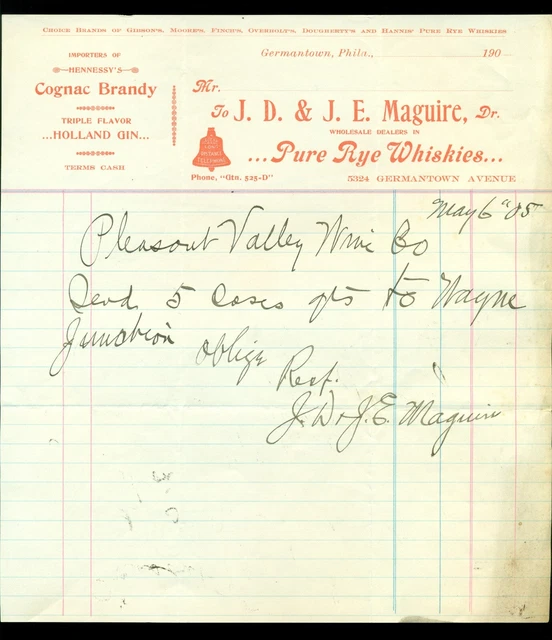 CHOICE BRANDS OF GIBSON'S, MOORE'S, FINCH'S, OVERHOLT'S, DOUGHERTY'S AND HANNIS' PURE RYE WHISKIES
IMPORTERS OF
HENNESSY'S
Cognac Brandy
TRIPLE FLAVOR
...HOLLAND GIN...
TERMS CASH
Germantown, Phila., 190
Mr.
To J. D. & J. E. Maguire, Dr.
WHOLESALE DEALERS IN
...Pure Rye Whiskies...
Phone, "Gtn. 525-D" 5324 GERMANTOWN AVENUE
May 6" 05
Pleasant Valley Wine Co
Send 5 Cases qts to Wayne
Junction
oblige
Resp.
J. D & J. E. Maguire